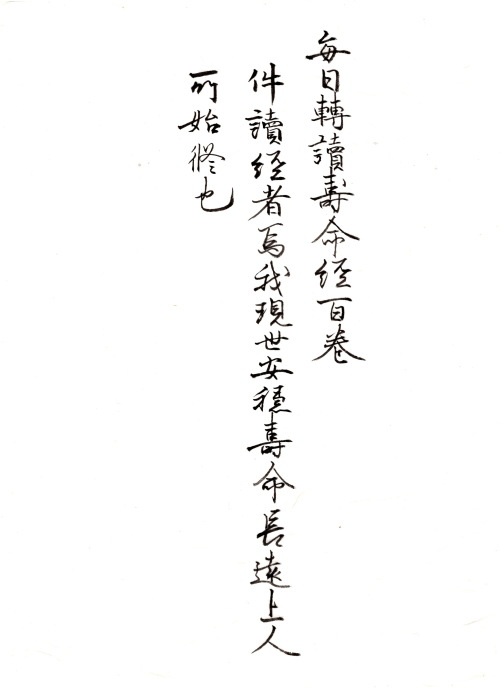 每日轉讀壽命經百卷
件讀經者為我現世安穩壽命長遠上人
所始修也